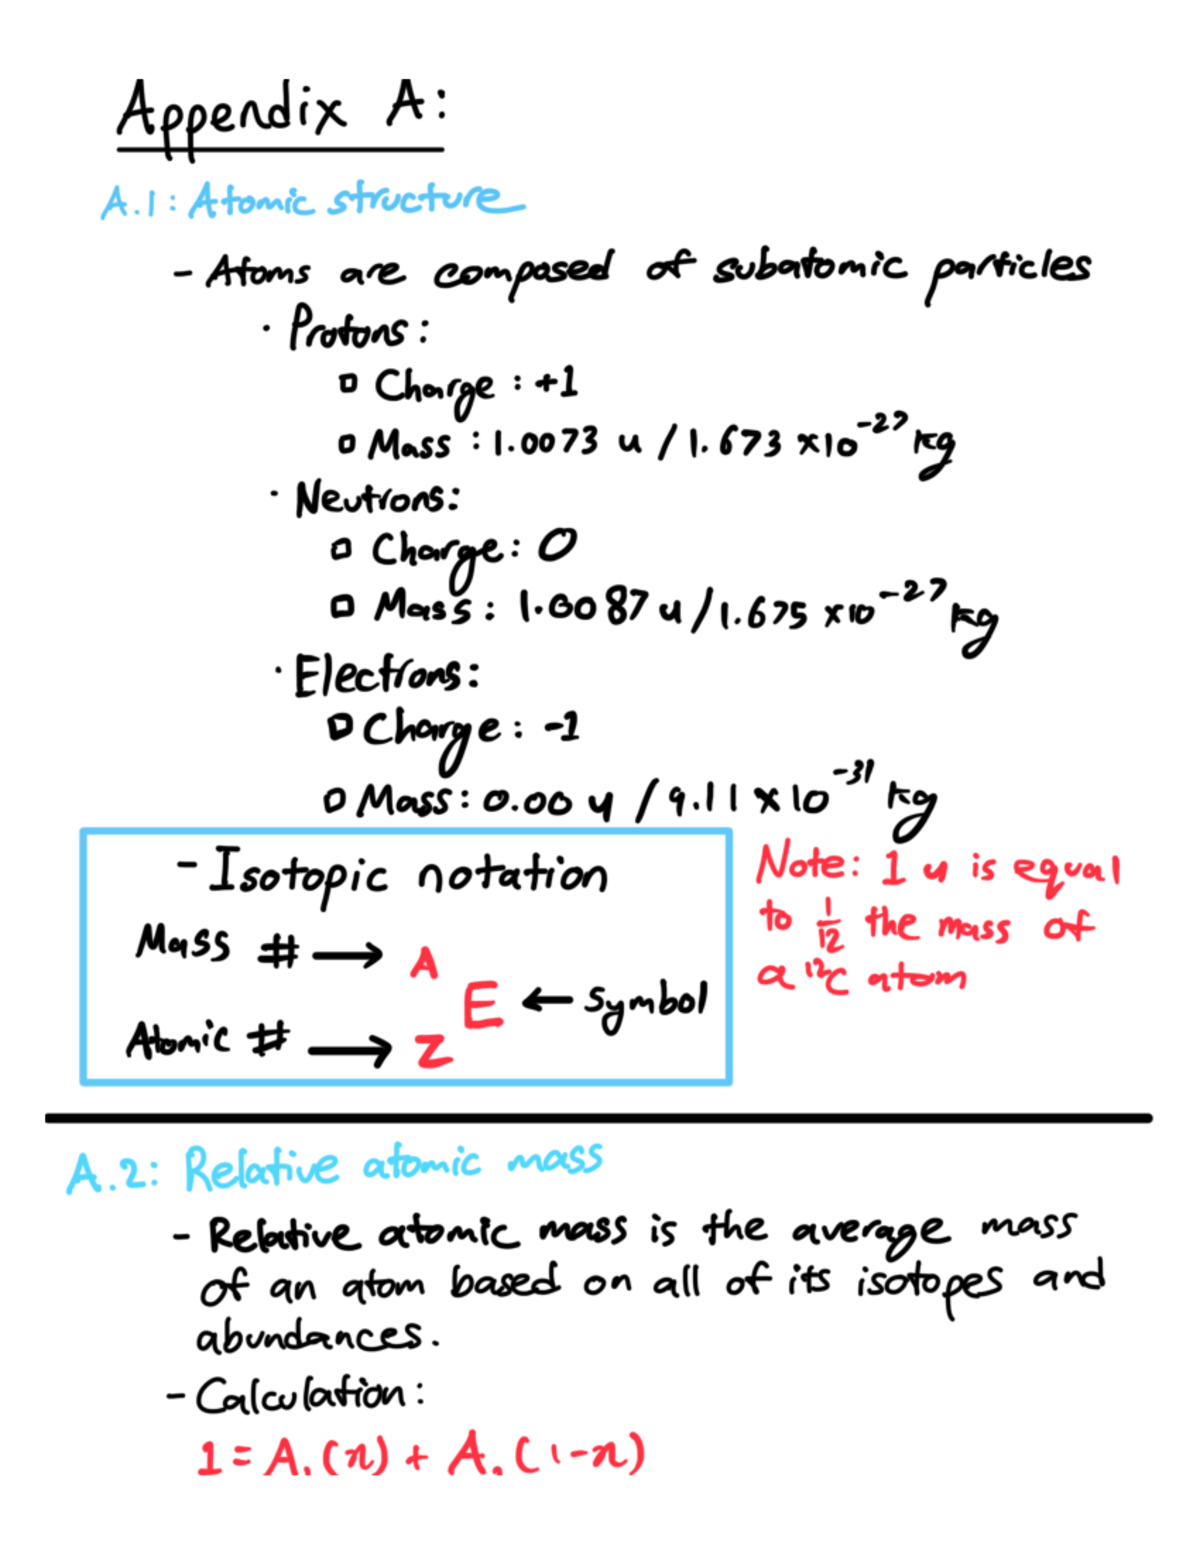 Appendix A:
A.1: Atomic structure
- Atoms are composed of subatomic particles
· Protons:
▫ Charge: +1
▫ Mass: 1.0073 u / 1.673 ×10⁻²⁷ kg
· Neutrons:
▫ Charge: 0
▫ Mass: 1.0087 u / 1.675 ×10⁻²⁷ kg
· Electrons:
▫ Charge: -1
▫ Mass: 0.00 u / 9.11 × 10⁻³¹ kg
- Isotopic notation
Mass # → A
E ← symbol
Atomic # → Z
Note: 1 u is equal
to 1/12 the mass of
a ¹²C atom
A.2: Relative atomic mass
- Relative atomic mass is the average mass
of an atom based on all of its isotopes and
abundances.
- Calculation:
1 = A.(x) + A.(1-x)